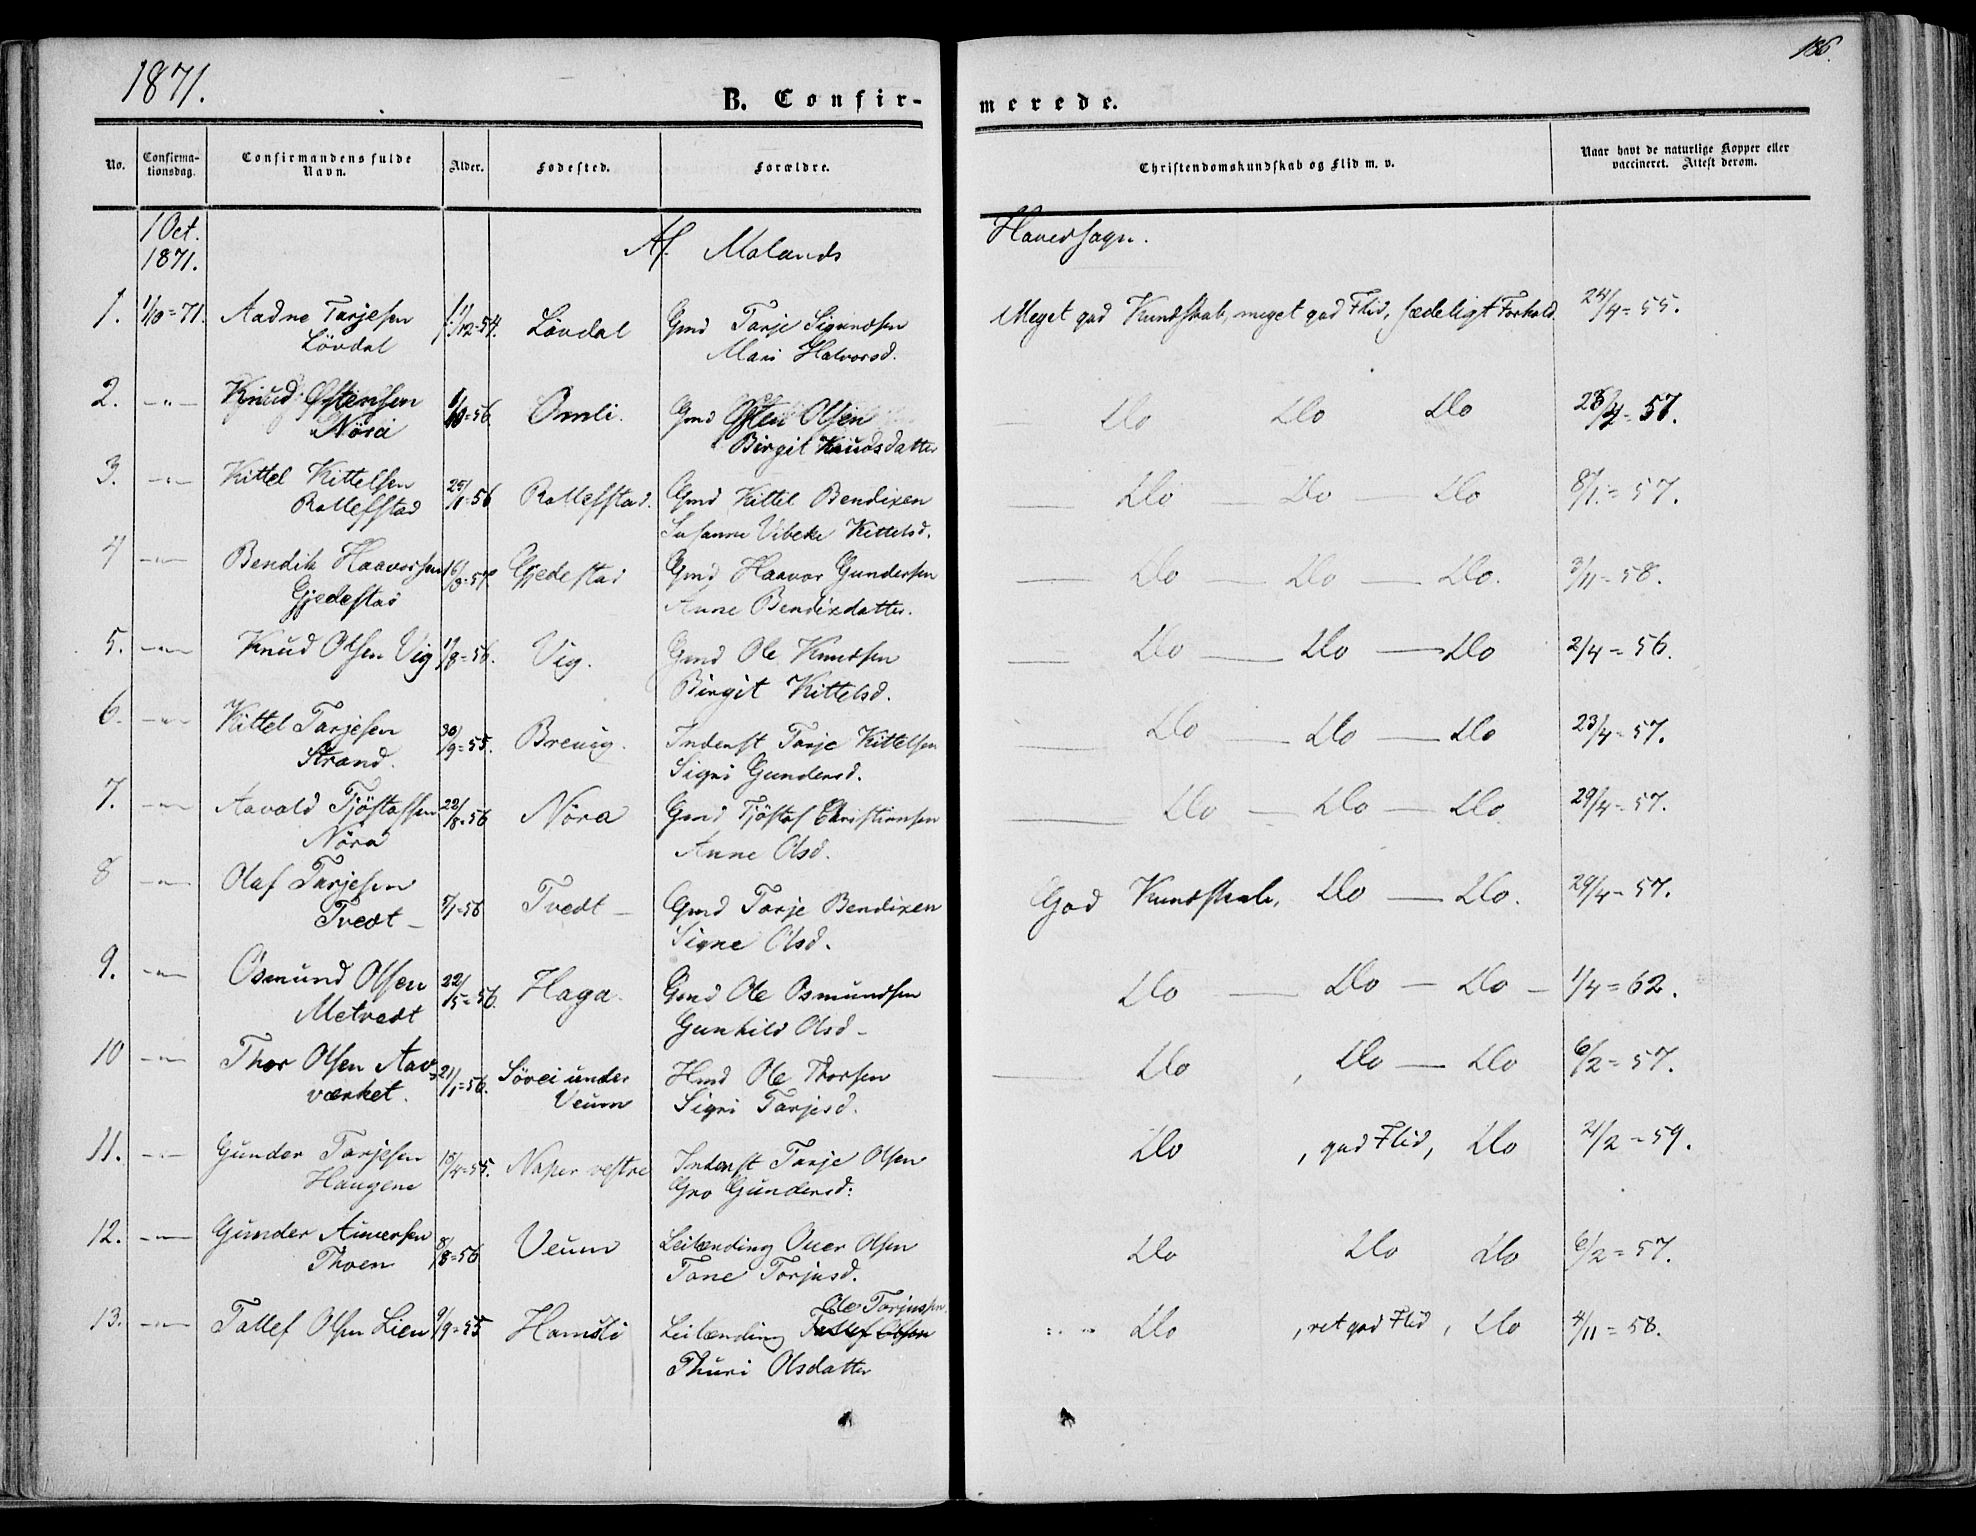 1871.
186.
B. Confir-
merede.
No.
Confirma-
tionsdag.
Confirmandens fulde
Navn.
Alder.
Fødested.
Forældre.
Christendomskundskab og Flid m. v.
Naar havt de naturlige Kopper eller
vaccineret. Attest derom.
1 Oct.
1871.
Af Molands
Hovedsogn.
1. 1/10=71. Aadne Tarjesen 11/12=54. Lövdal Gmd Tarje Sigurdsen Meget god Kundskab, meget god Flid, sædeligt Forhold 24/4=55.
Lövdal Mari Halvorsd.
2. -"- Knud Østensen 1/10=56 Omli. Gmd Østen Olsen Do Do Do 57.
Nöra Birgit Knudsdatter
3. -"- Kittel Kittelsen 25/11=56 Rollefstad. Gmd Kittel Bendixen Do Do Do 8/1=57.
Rollefstad Susanne Vibeke Kittelsd.
4 -"- Bendik Haavorsen 16/9=57 Gjedestad Gmd Haavor Gundersen Do Do Do. 3/11=58.
Gjedestad Anne Bendixdatter.
5. -"- Knud Olsen Vig 17/8=56. Vig. Gmd Ole Knudsen Do Do Do 2/4=56.
Birgit Kittelsd.
6. -"- Kittel Tarjesen 30/9=55. Brevig. Inderst Tarje Kittelsen Do Do Do 23/4=57.
Strand. Sigri Gundersd.
7. -"- Aavald Tjöstafsen 22/8=56 Nöra Gmd Tjöstaf Christiansen Do Do Do 29/4=57.
Nöra Anne Olsd.
8 -"- Olaf Tarjesen 5/1=56 Tvedt Gmd Tarje Bendixen God Kundskab, Do Do. 29/4=57.
Tvedt Signe Olsd.
9. -"- Osmund Olsen 22/5=56. Haga. Gmd Ole Osmundsen Do Do Do 1/4=62.
Metvedt Gunhild Olsd
10 -"- Thor Olsen Aav- 21/1=56. Sövei under Hmd Ole Thorsen Do , Do Do 6/2=57.
værket. Veum Sigri Tarjesd.
11. -"- Gunder Tarjesen 18/4=55. Naper vestre Inderst Tarje Olsen Do , god Flid, Do 2/2=59.
Haugene Gro Gundersd:
12. -"- Gunder Auversen 8/8=56 Veum Leilænding Over Olsen Do Do Do 6/2=57.
Thoen Tone Torjusd.
Ole Torjussen
13. -"- Tallef Olsen Lien 9/9=55 Hamsli Leilænding Tallef Olsen Do , ret god Flid, Do 4/11=58.
Thuri Olsdatter